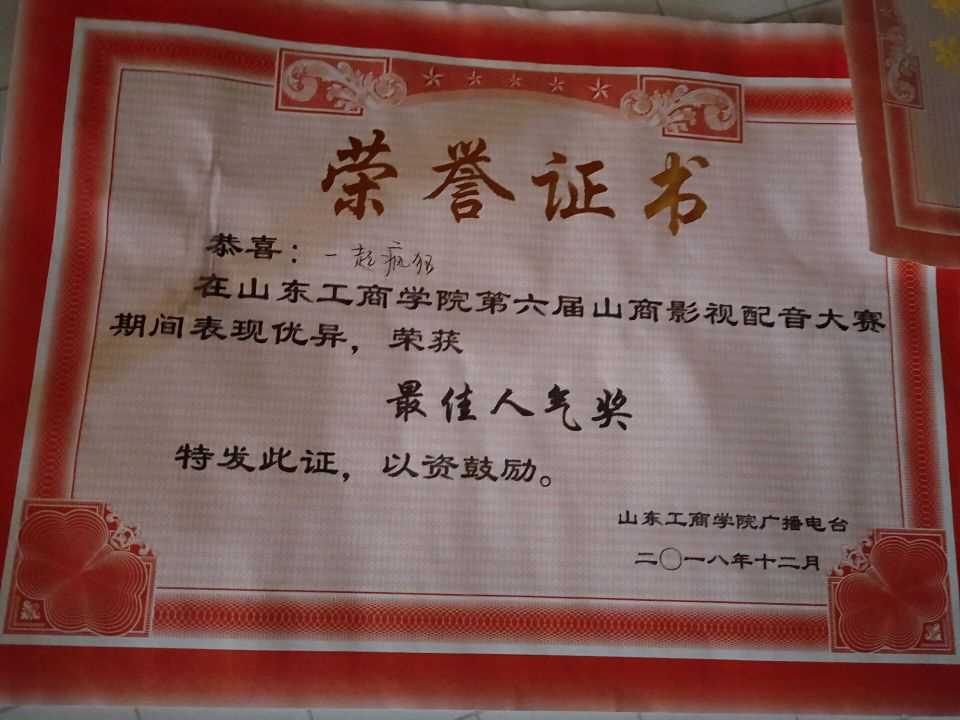 荣誉证书
恭喜：一起疯狂
在山东工商学院第六届山商影视配音大赛
期间表现优异，荣获
最佳人气奖
特发此证，以资鼓励。
山东工商学院广播电台
二〇一八年十二月